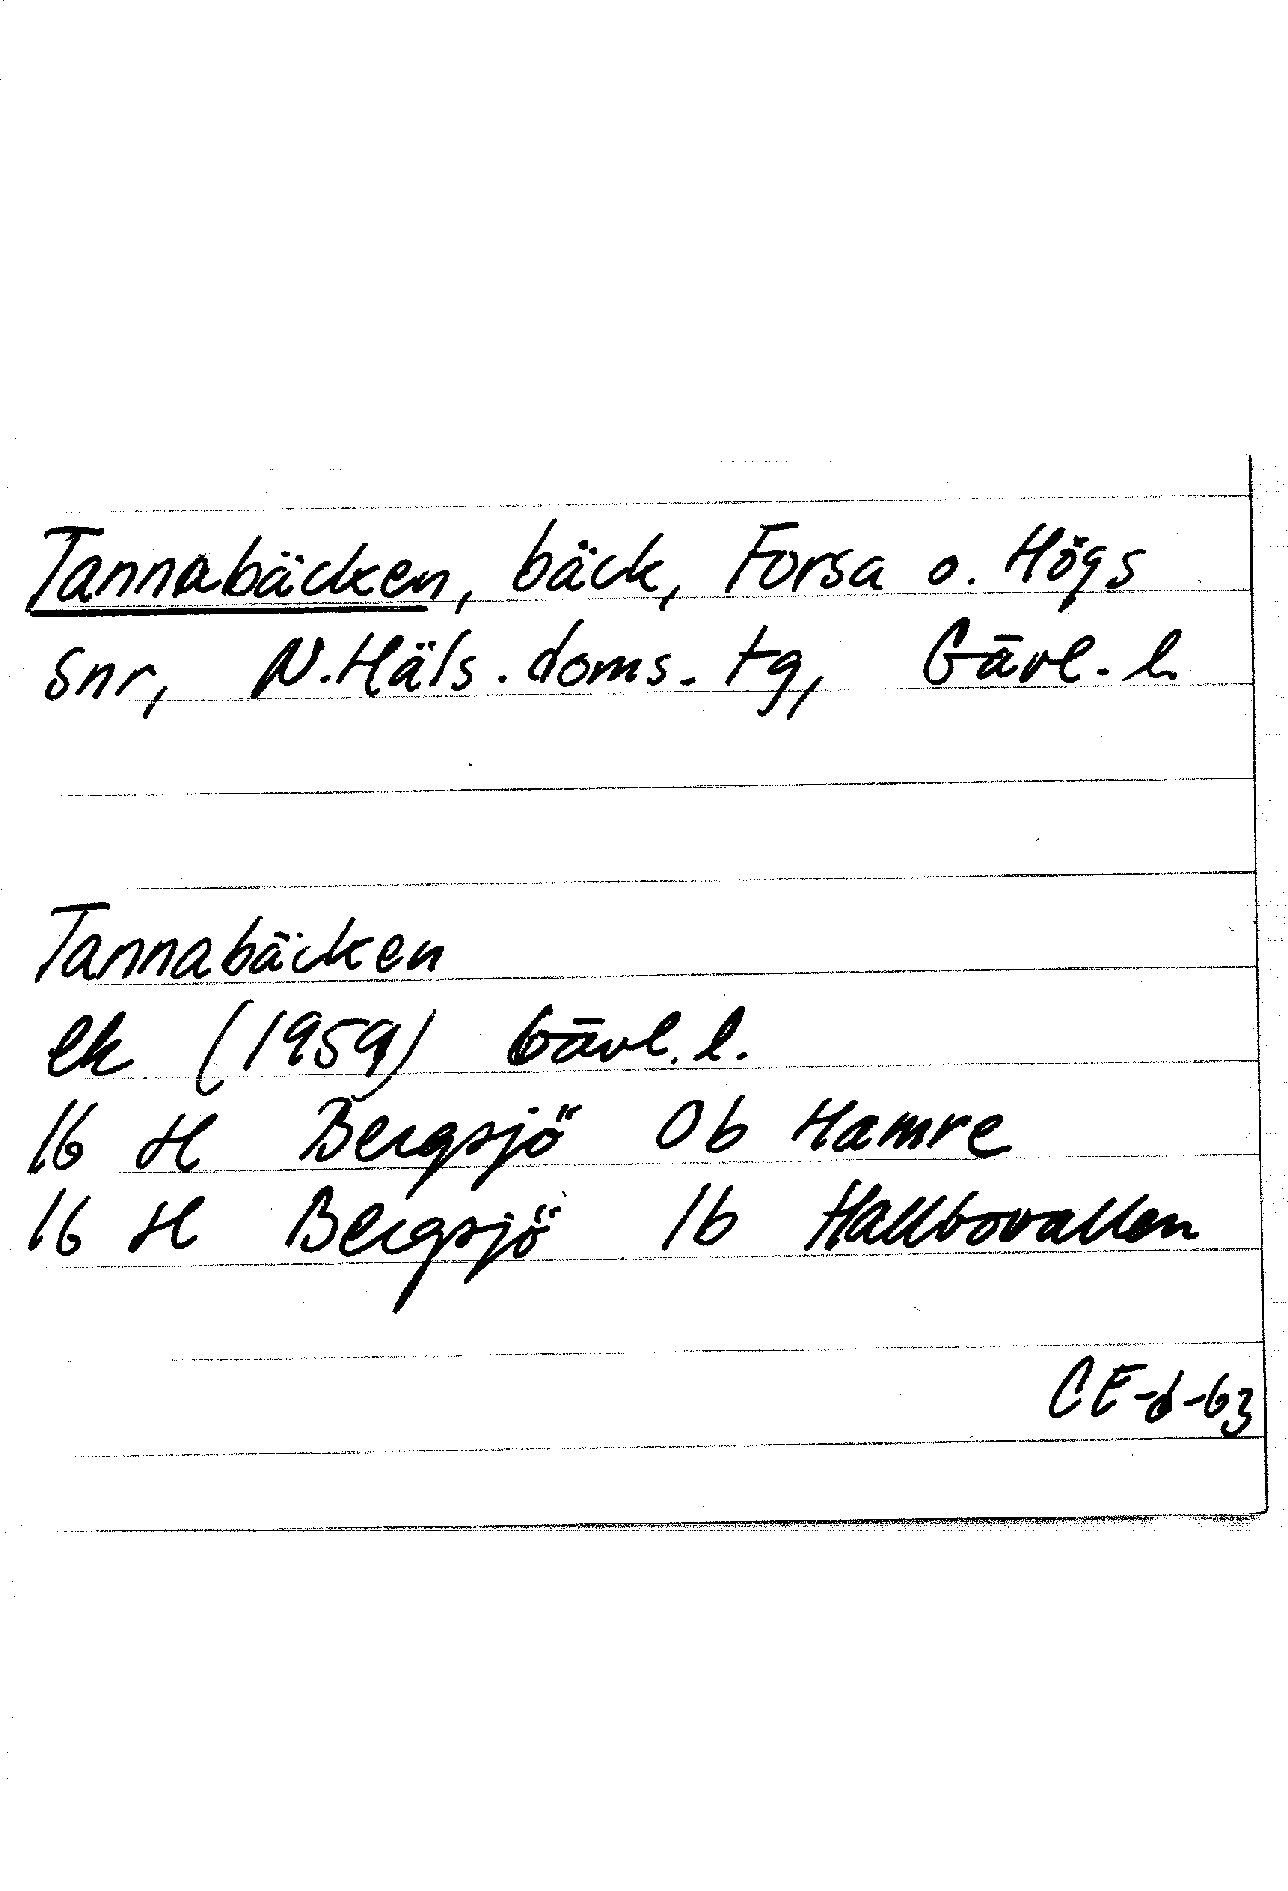 Tannabäcken, bäck, Forsa o. Högs
snr, N.Häls.doms.tg, Gävl.l.
Tannabäcken
ek (1959) Gävl.l.
16 H Bergsjö 0b Hamre
16 H Bergsjö 1b Hallbovallen
CE-6-63